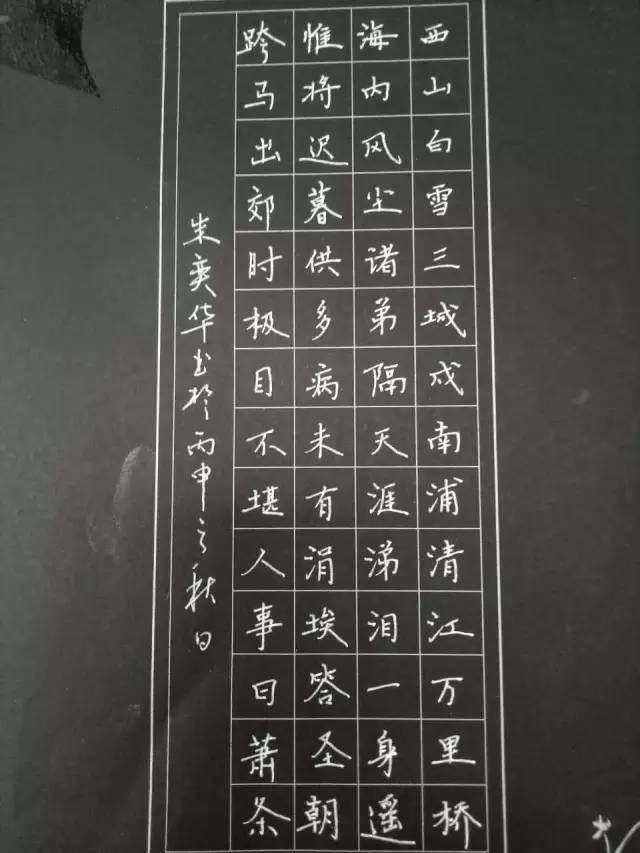 西山白雪三城戍南浦清江万里桥
海内风尘诸弟隔天涯涕泪一身遥
惟将迟暮供多病未有涓埃答圣朝
跨马出郊时极目不堪人事日萧条
朱奕华书于丙申之秋日